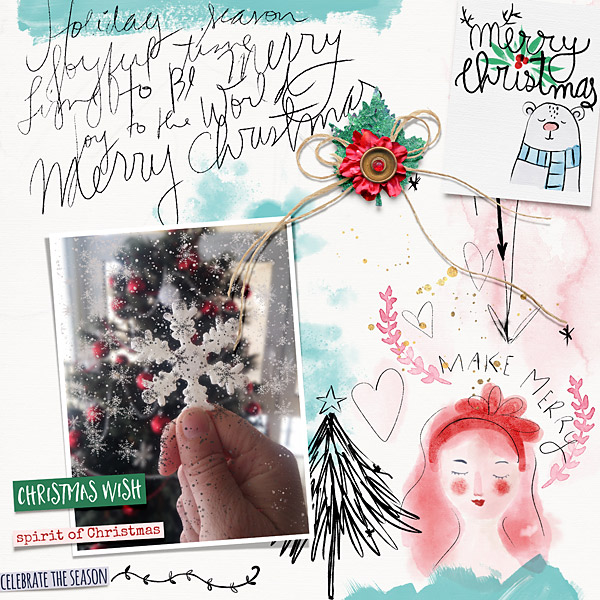 Holiday Season
Joyful time
to Be Merry
Joy to the World
Merry Christmas
merry
christmas
MAKE MERRY
CHRISTMAS WISH
spirit of Christmas
CELEBRATE THE SEASON